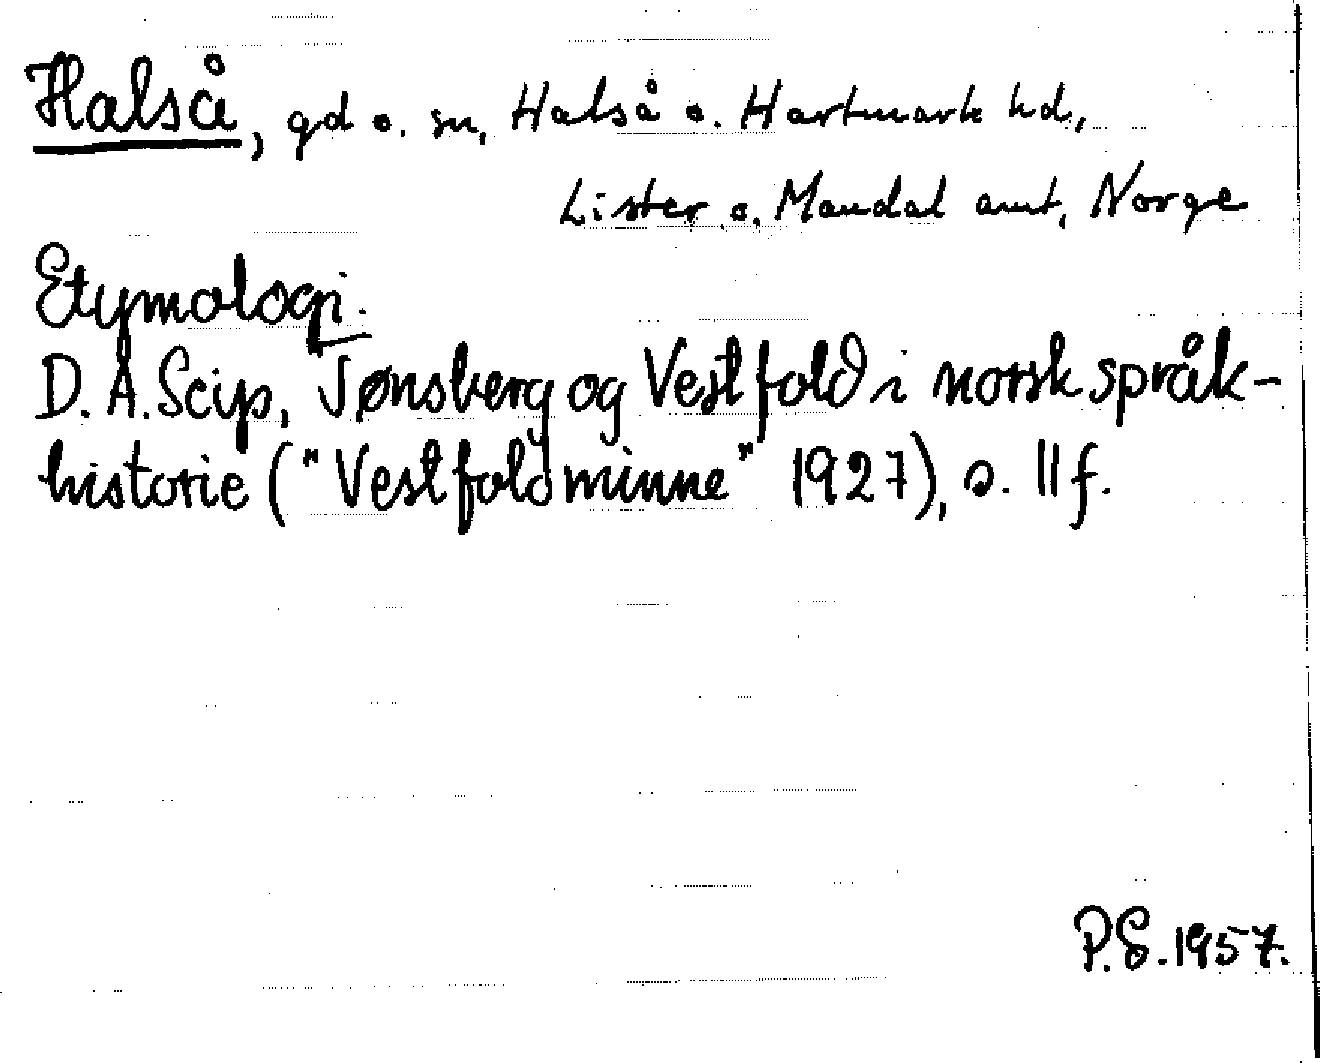 Halså, gd o. sn, Halså o. Hartmark hd,
Lister o. Mandal amt, Norge
Etymologi.
D. A. Seip, Tønsberg og Vestfold i norsk språk-
historie ("Vestfoldminne" 1927), s. 11 f.
P.S. 1957.